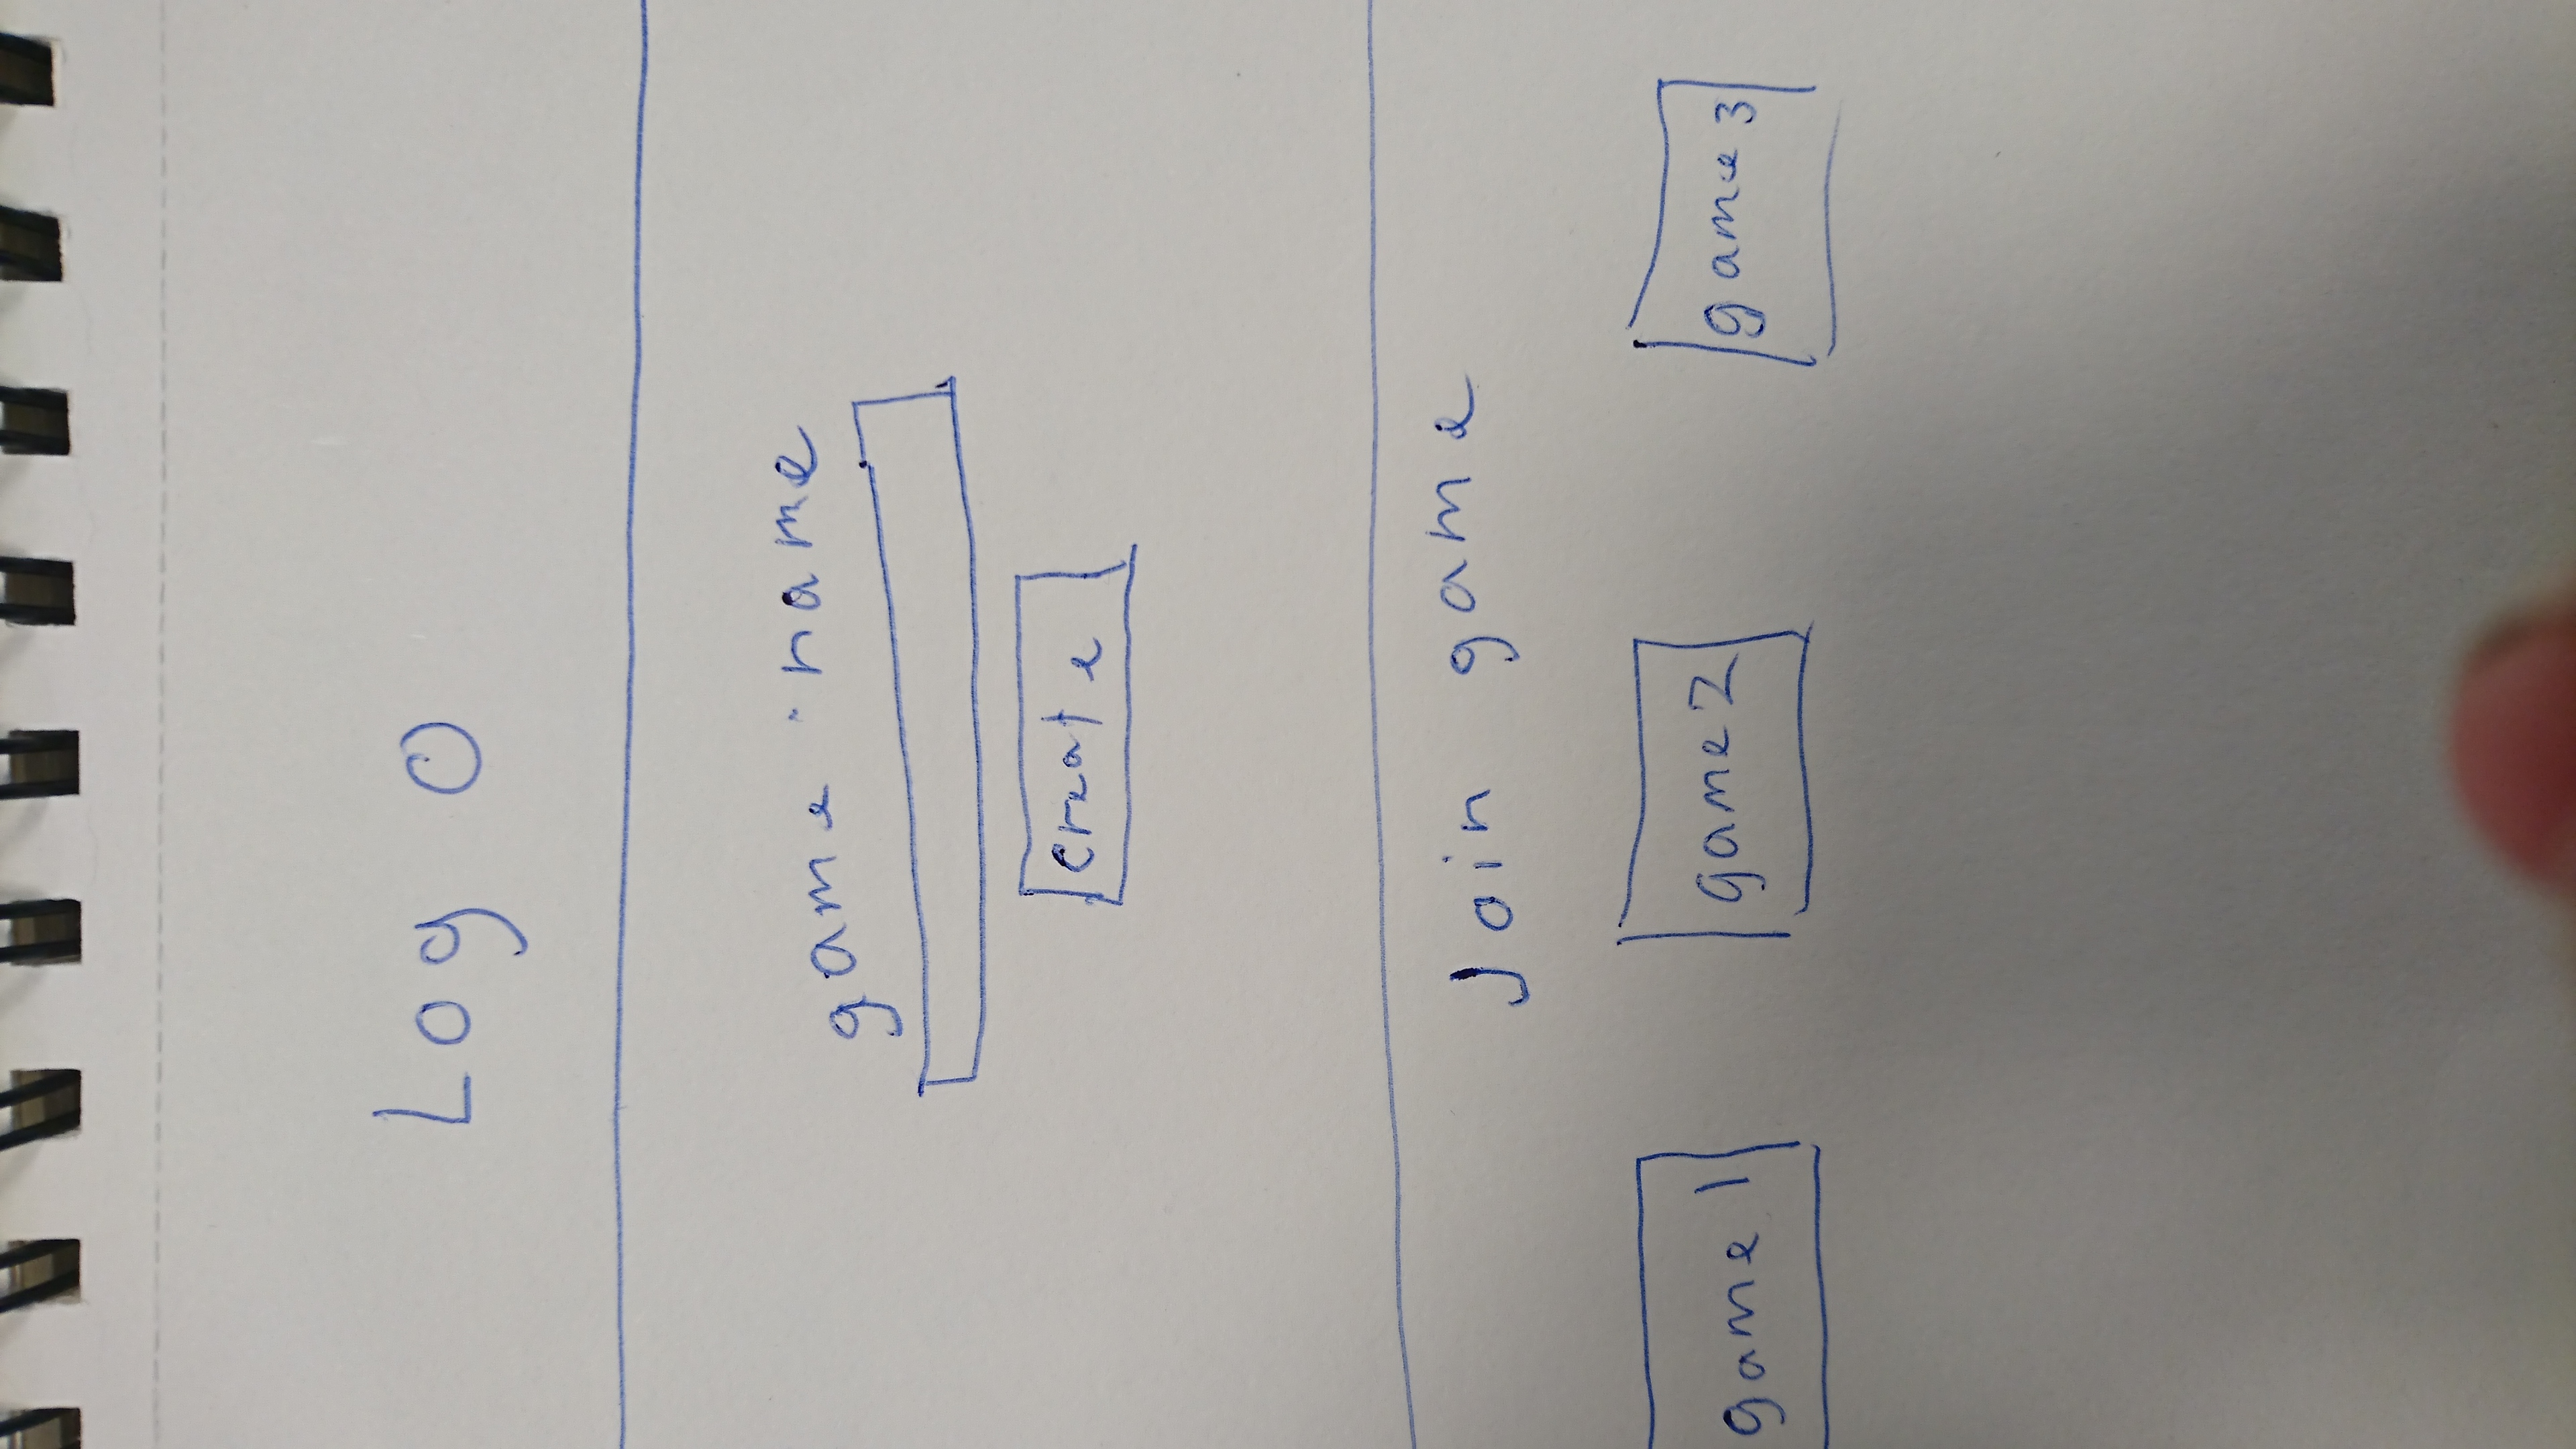 Log o
game name
create
Join game
game 1 game 2 game 3